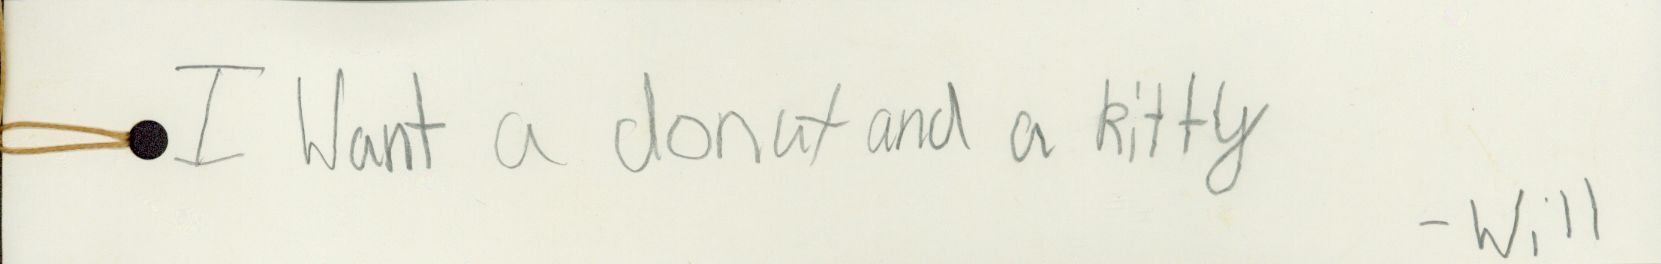 I Want a donut and a kitty
- Will